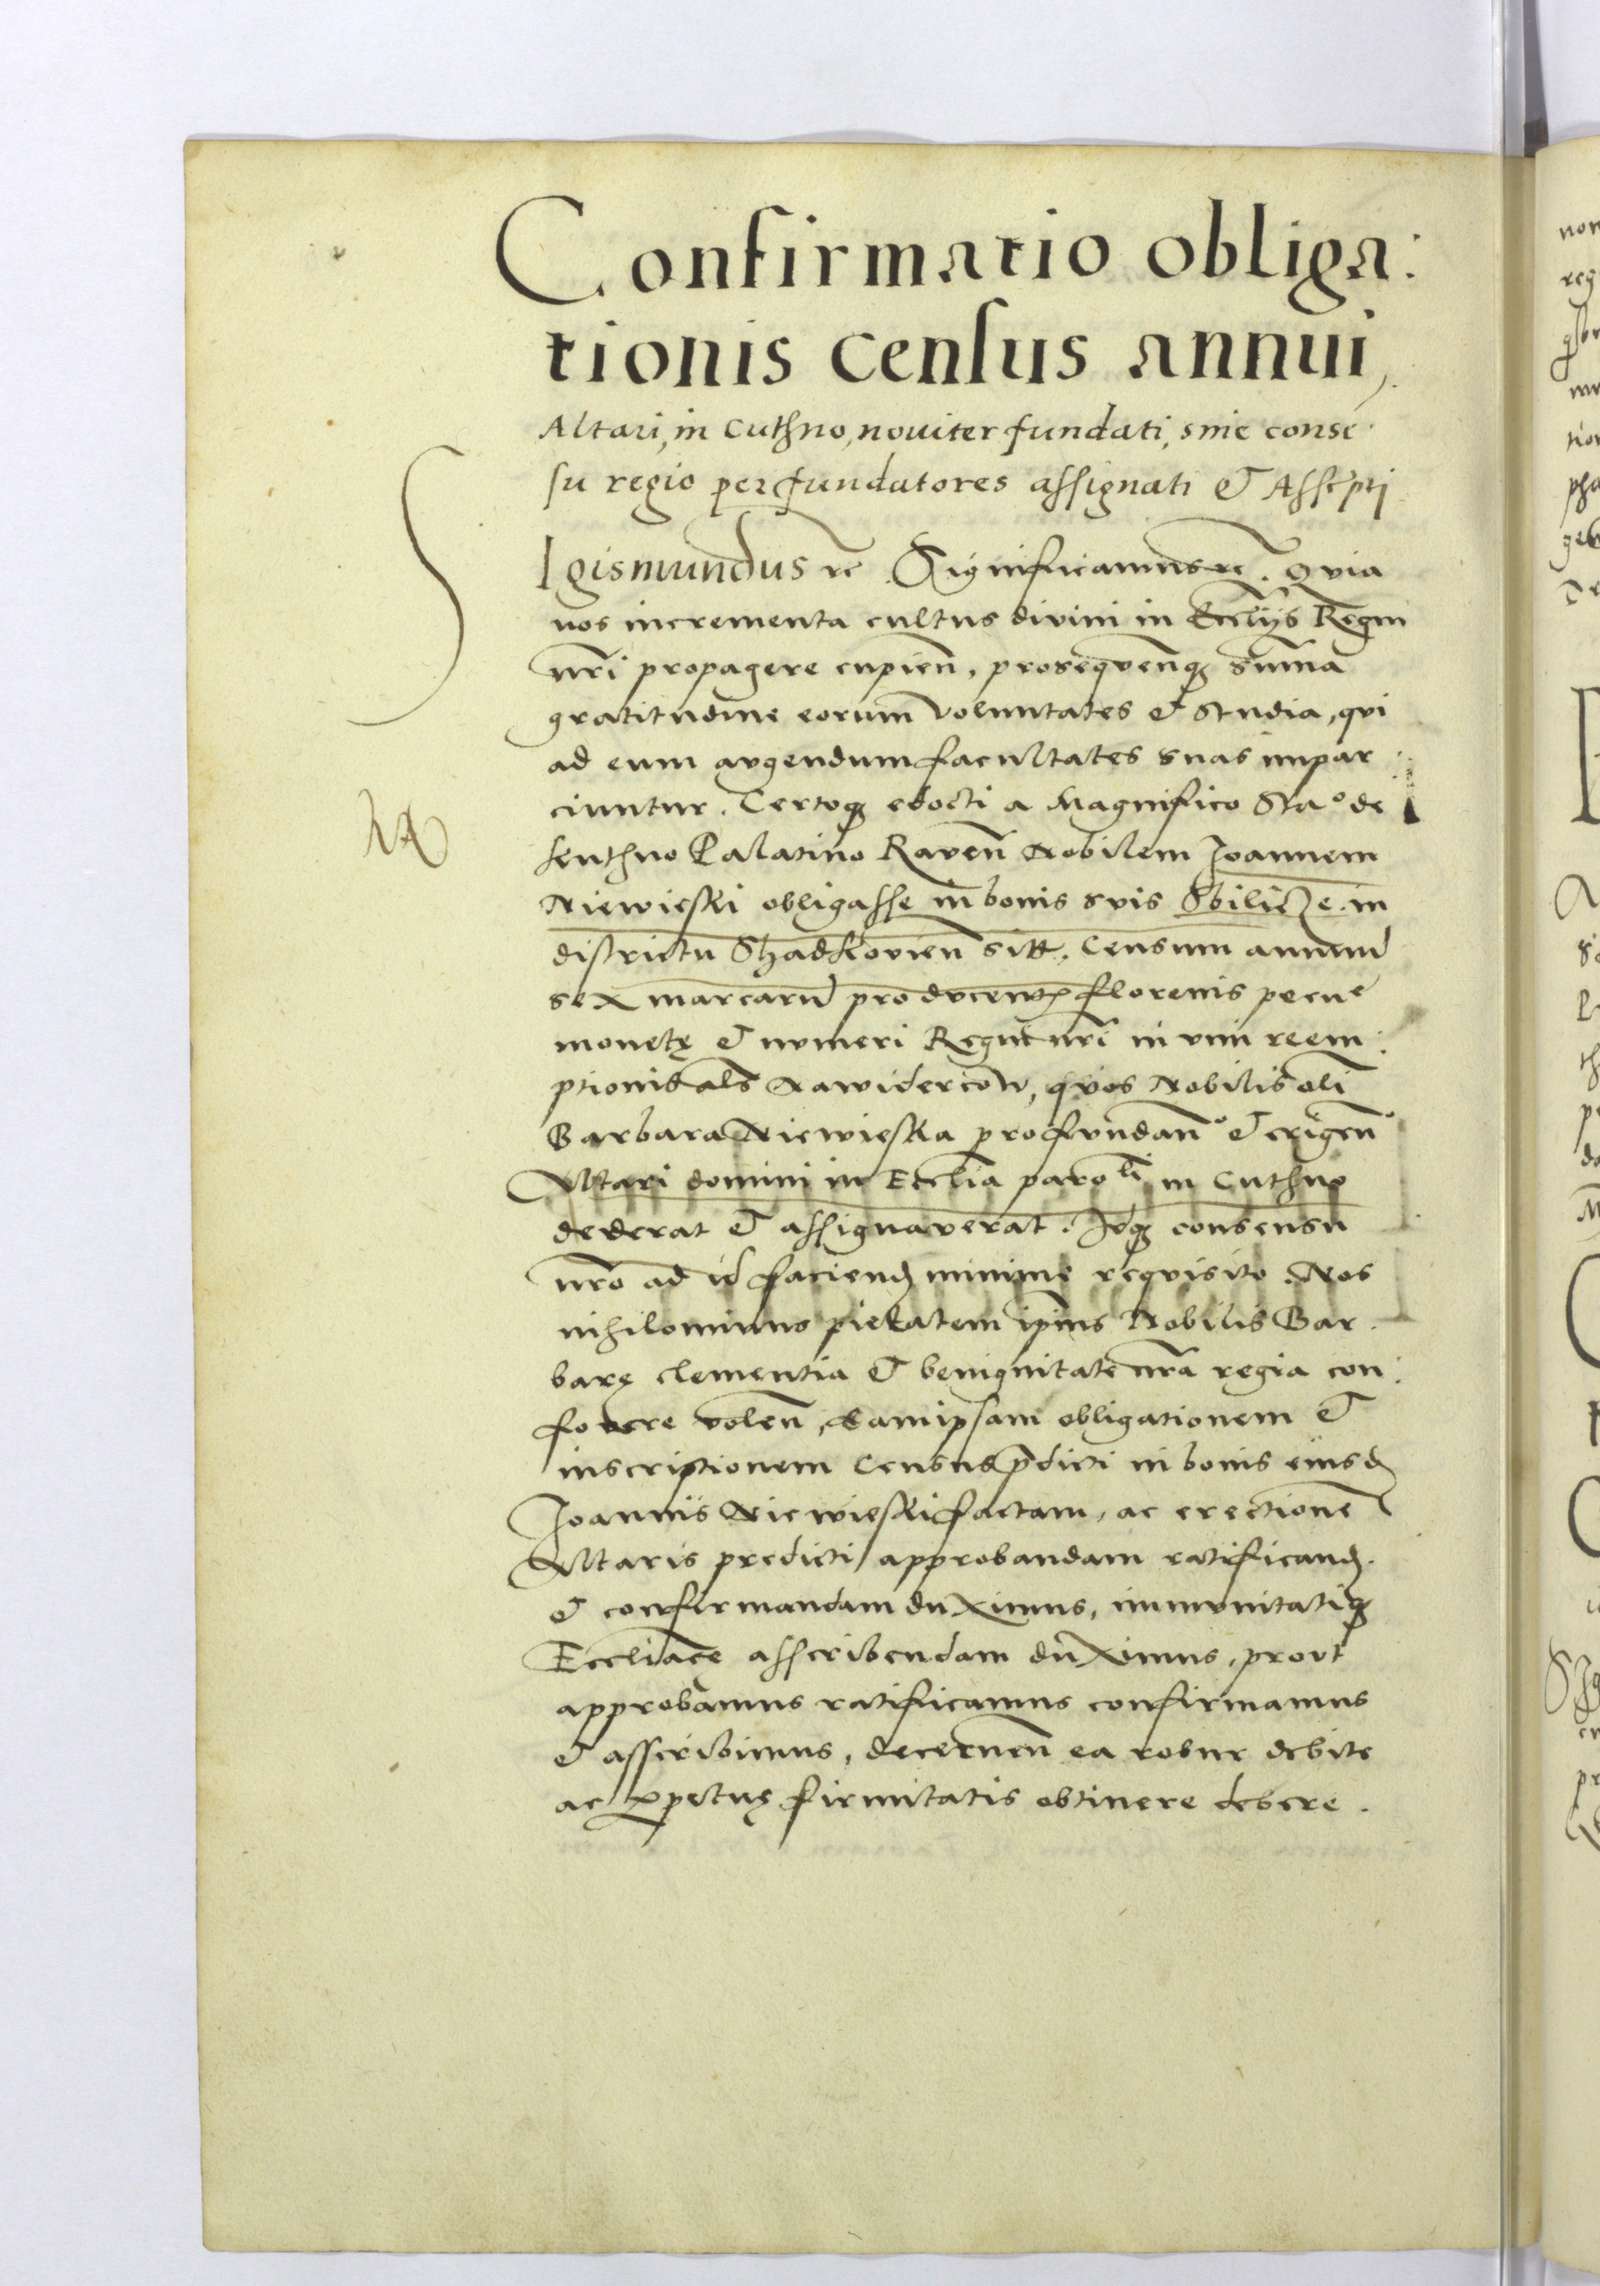 Confirmatio obliga:
tionis census annui,
Altari, in Cuthno, noviter fundati, sine conse
su regio per fundatores assignati & Asscrpti
SIgismundus rc Significamus rc. Qvia
nos incrementa cultus divini in Eccliys Regni
nri propagere cupien, prosequenq suma
gratitudine eorum voluntates & studia, qvi
ad eum avgendum facultates suas impar:
ciuntur. Certoq edocti a Magnifico Stao de
Kuthno Palatino Raven Nobilem Joannem
Niewieski obligasse in bonis svis Sbilicze in
districtu Shadkovien sitt, Censum annuu
sex marcaru pro ducentis florenis pecue
monetę & nvmeri Regni nri in vim reem:
ptionis als Nawidercow, qvos Nobilis oli
Barbara Niewieska pro fvndano & erigeno
Altari domini in Ecclia paroli in Cuthno
dederat & assignaverat. Idq consensu
nro ad id faciend minime reqvisito. Nos
nihilominus pietatem ipius Nobilis Bar.
barę clementia & benignitate nra regia con:
fovere volen, eam ipsam obligationem &
inscriptionem Census pdicti in bonis eiusd
Joannis Niewieski factam, ac erectione
Altaris predicti approbandam ratificand.
& confirmandam duximus, immvnitatiq
Eccliace asscribendam duximus, provt
approbamus ratificamus confirmamus
& asscribimus, decernen ea robur debite
ac ppetuę firmitatis obtinere debere.